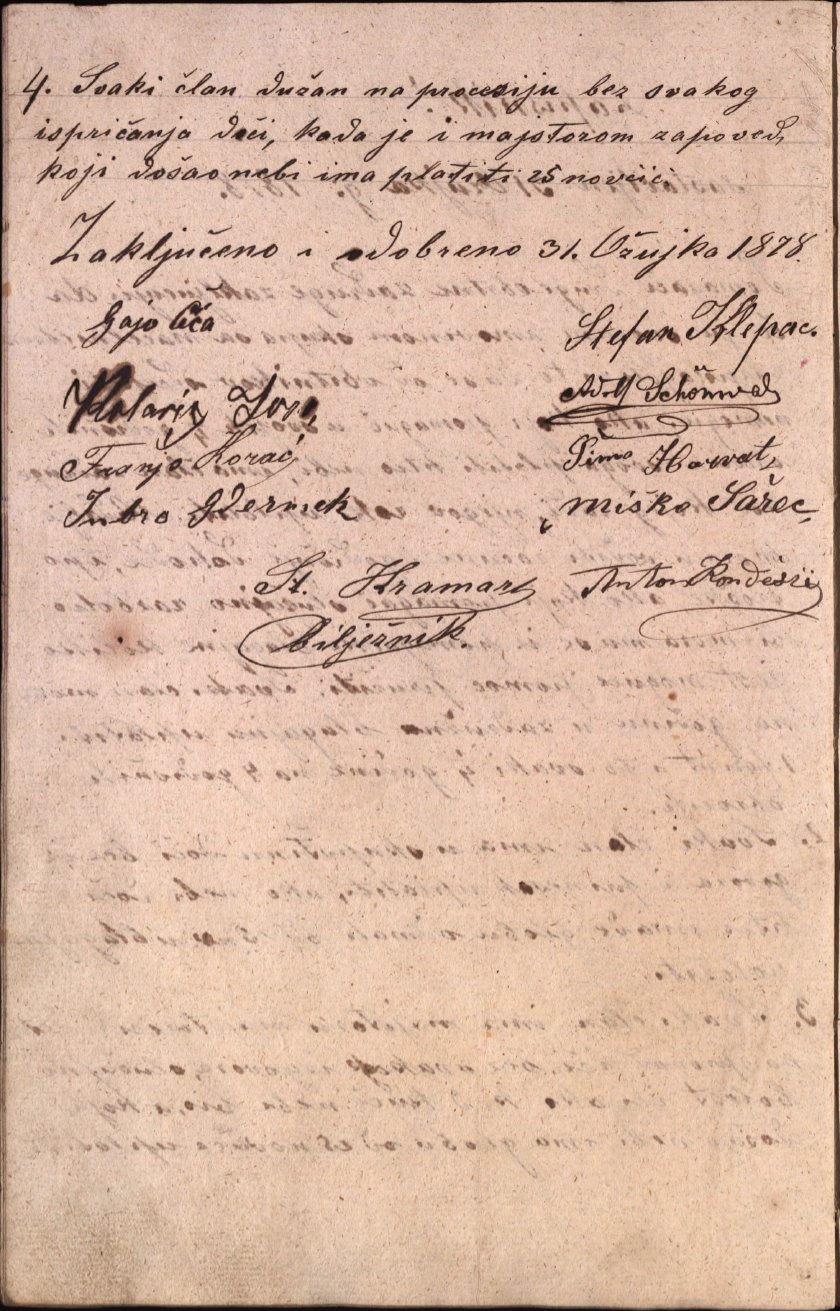 4. Svaki član dužan na procesiju bez svakog
ispričanja doći, kada je i majstorom zapoved,
koji došao nebi ima platiti 25 novčići
Zaključeno i odobreno 31. Ožujka 1878.
Gajo Čiča
Stefan Klepac.
Kolarić Ivo,
Adolf Schönwald
Franjo Korać
Šimo Horvat,
Imbro Dermek
Miško Sařec,
St. Kramar
Anton
Bilježnik.